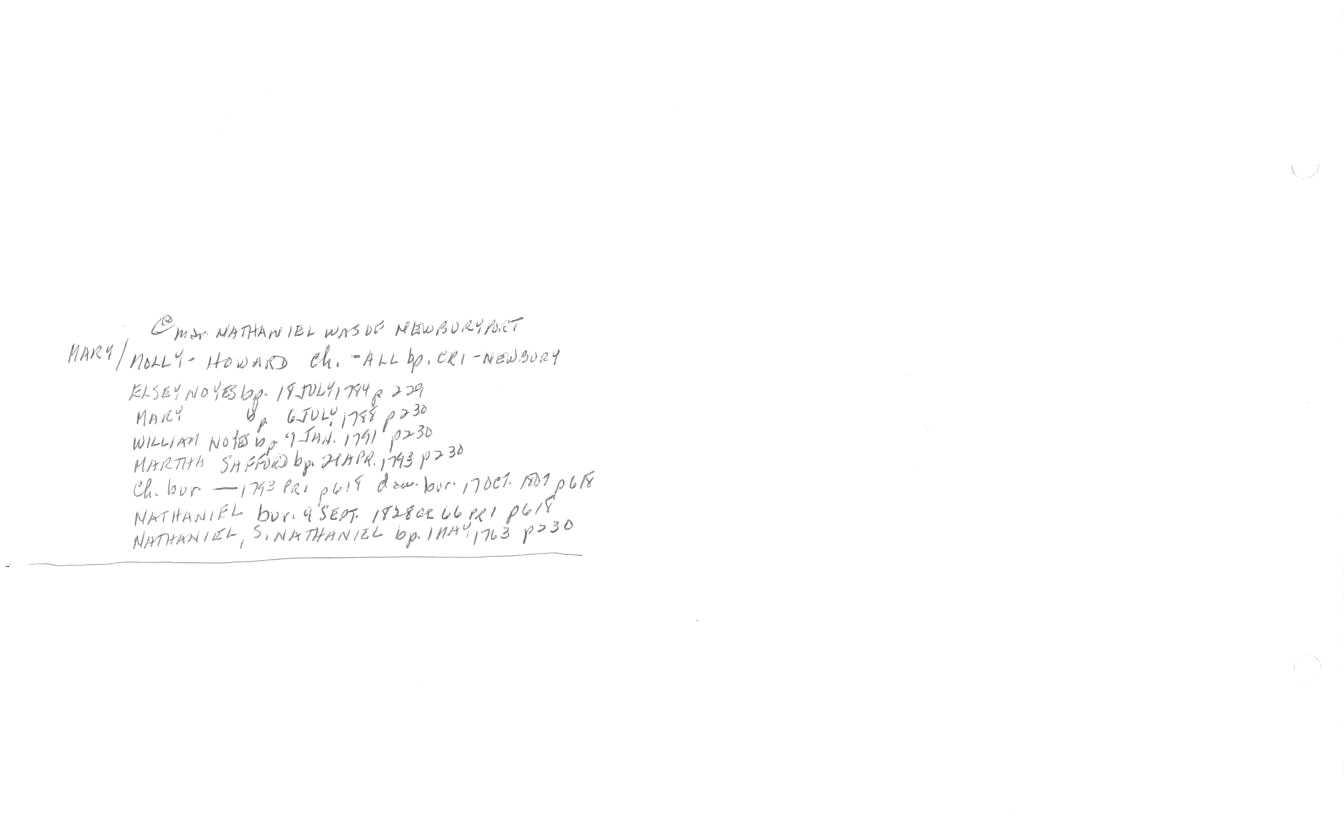 @ mar. NATHANIEL WAS OF NEWBURYPORT
MARY/MOLLY - HOWARD Ch. - ALL bp. CR1 - NEWBURY
ELSEY NOYES bp. 18 JULY, 1784 p 229
MARY bp 6 JULY, 1788 p230
WILLIAM NOYES bp 9 JAN. 1791 p230
MARTHA SAFFORD bp. 21 APR. 1793 p230
Ch. bur — 1793 PR1 p618 dau. bur. 17 OCT. 1807 p618
NATHANIEL bur. 9 SEPT. 1828 ae 66 PR1 p618
NATHANIEL, S. NATHANIEL bp. 1 MAY, 1763 p230